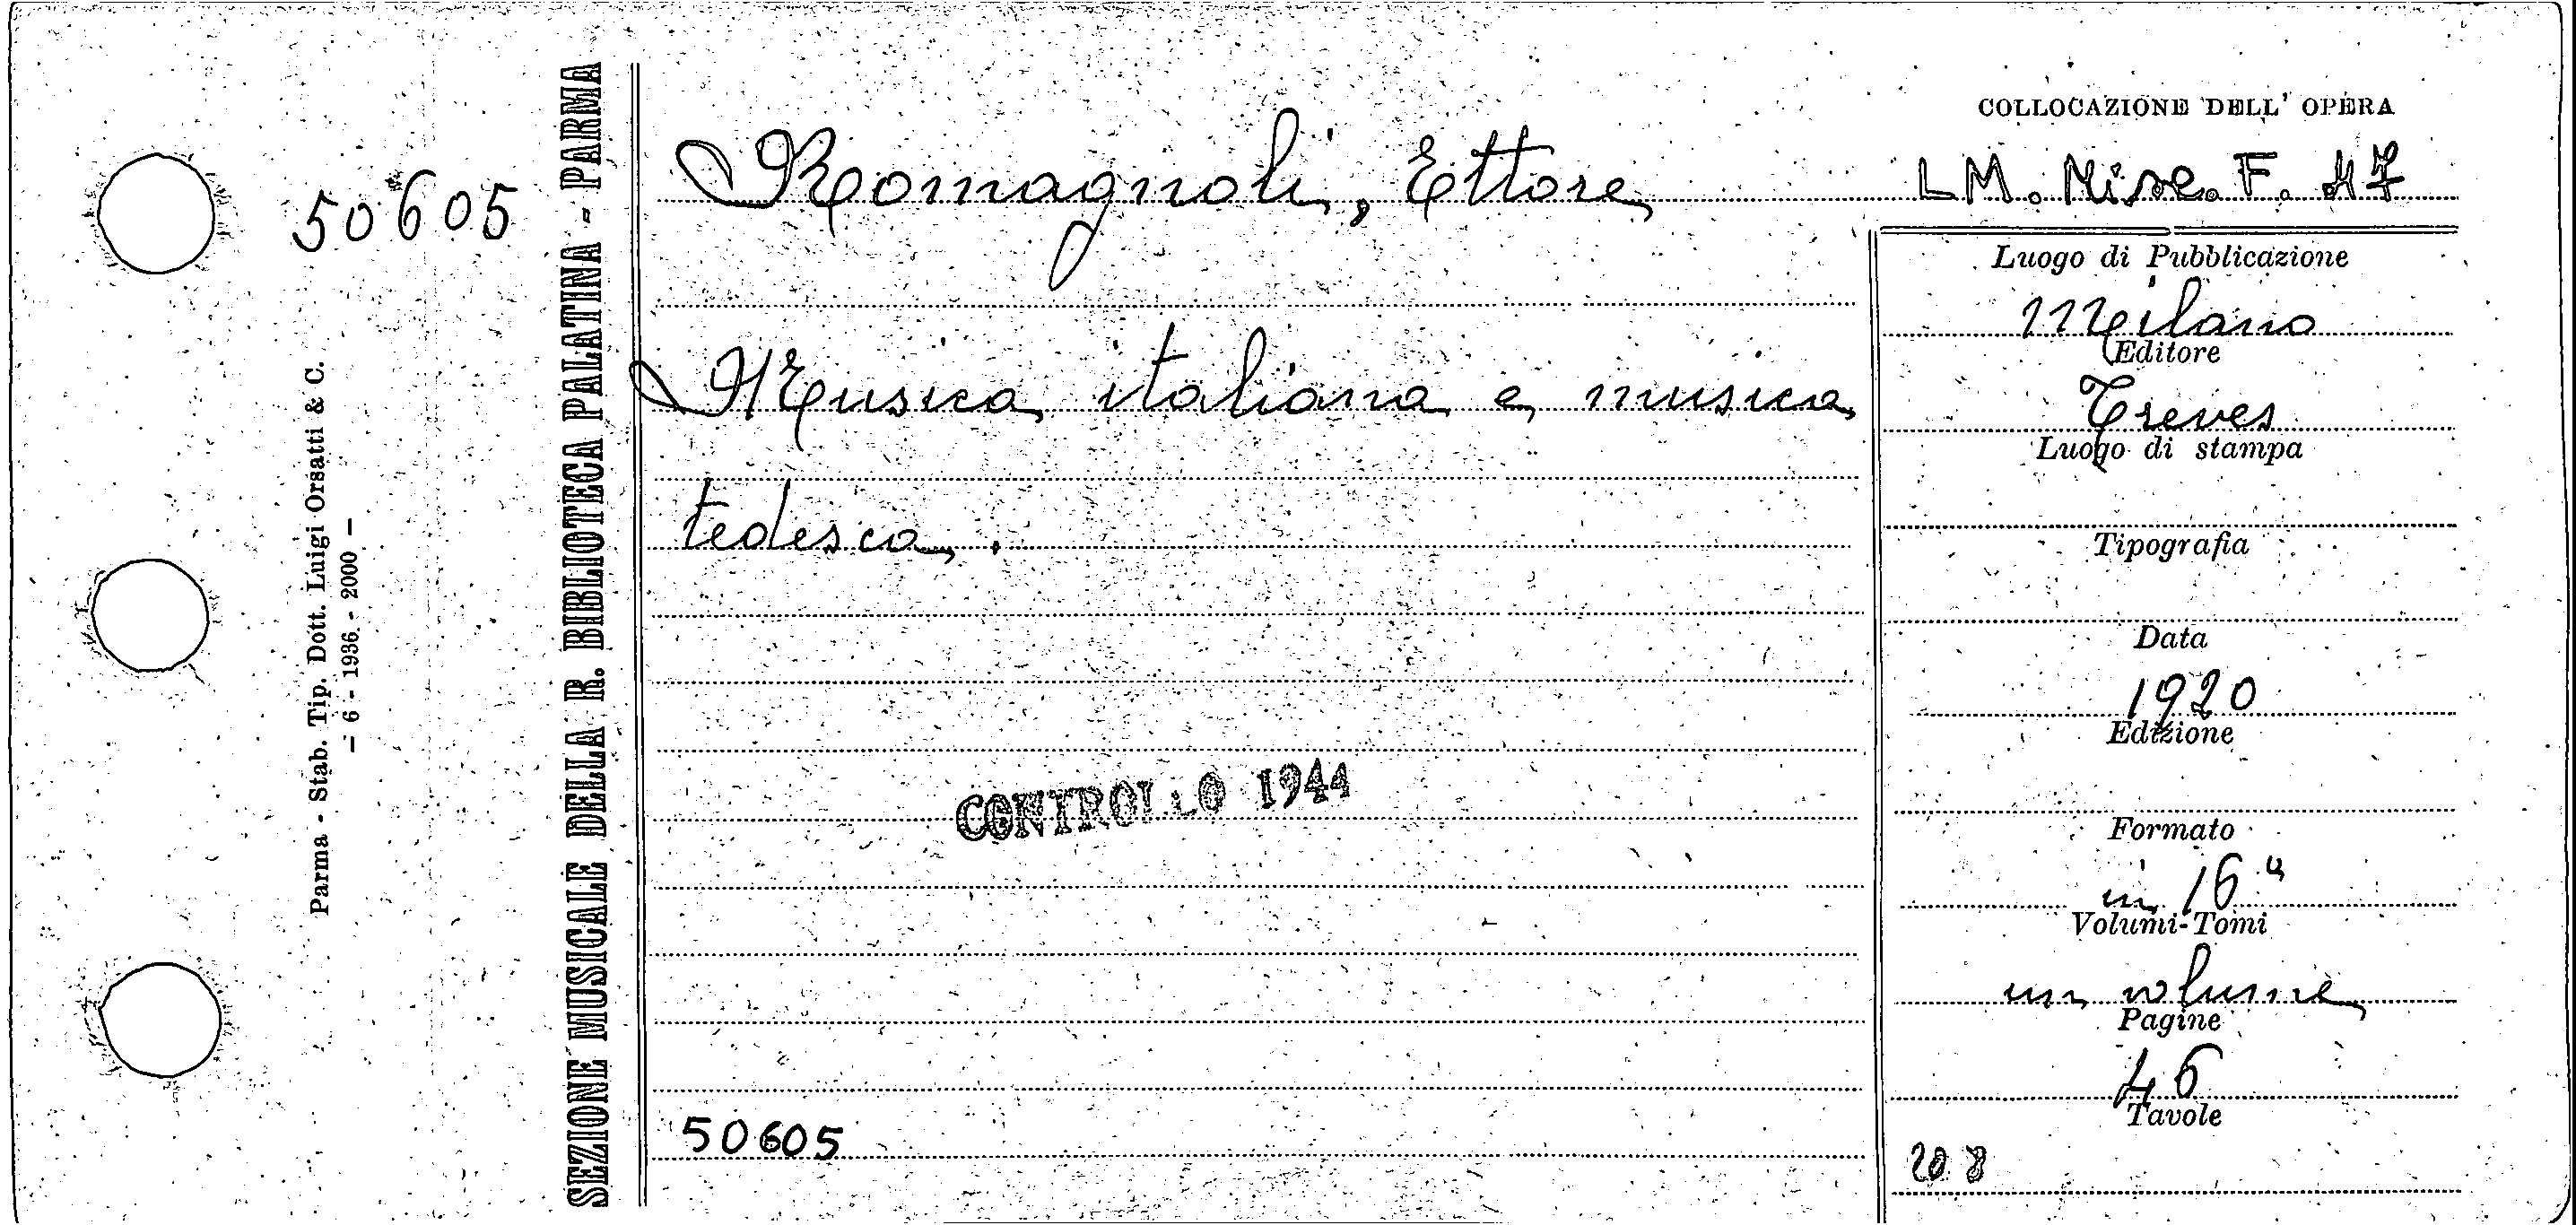 50605
Parma - Stab. Tip. Dott. Luigi Orsatti & C.
— 6 - 1936 - 2000 —
SEZIONE MUSICALE DELLA R. BIBLIOTECA PALATINA - PARMA
Romagnoli, Ettore
Musica italiana e musica
tedesca.
CONTROLLO 1944
50605
COLLOCAZIONE DELL' OPERA
LM. Misc. F. 47
Luogo di Pubblicazione
Milano
Editore
Treves
Luogo di stampa
Tipografia
Data
1920
Edizione
Formato
in 16°
Volumi-Tomi
un volume
Pagine
46
Tavole